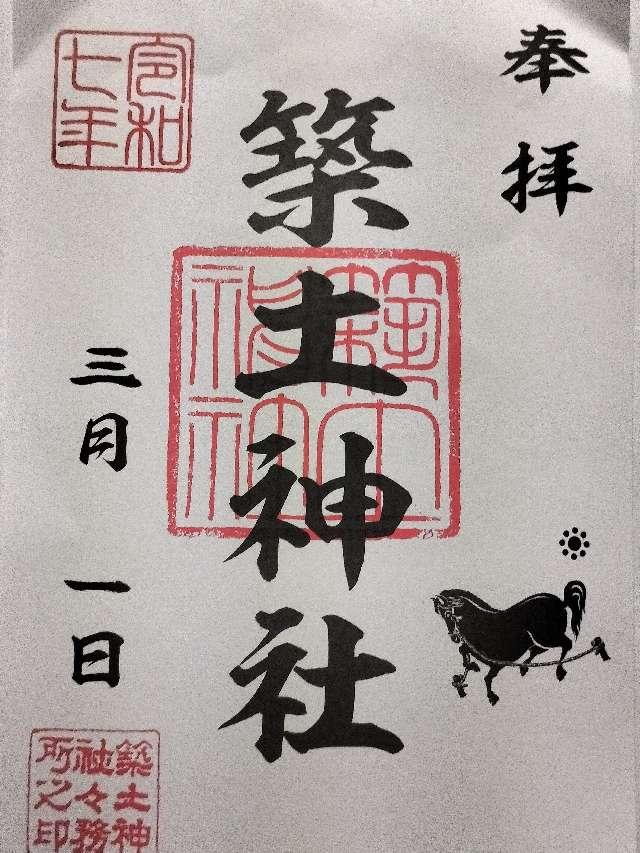 奉拝
築土神社
築土神社
令和七年
三月一日
築土神社々務所之印